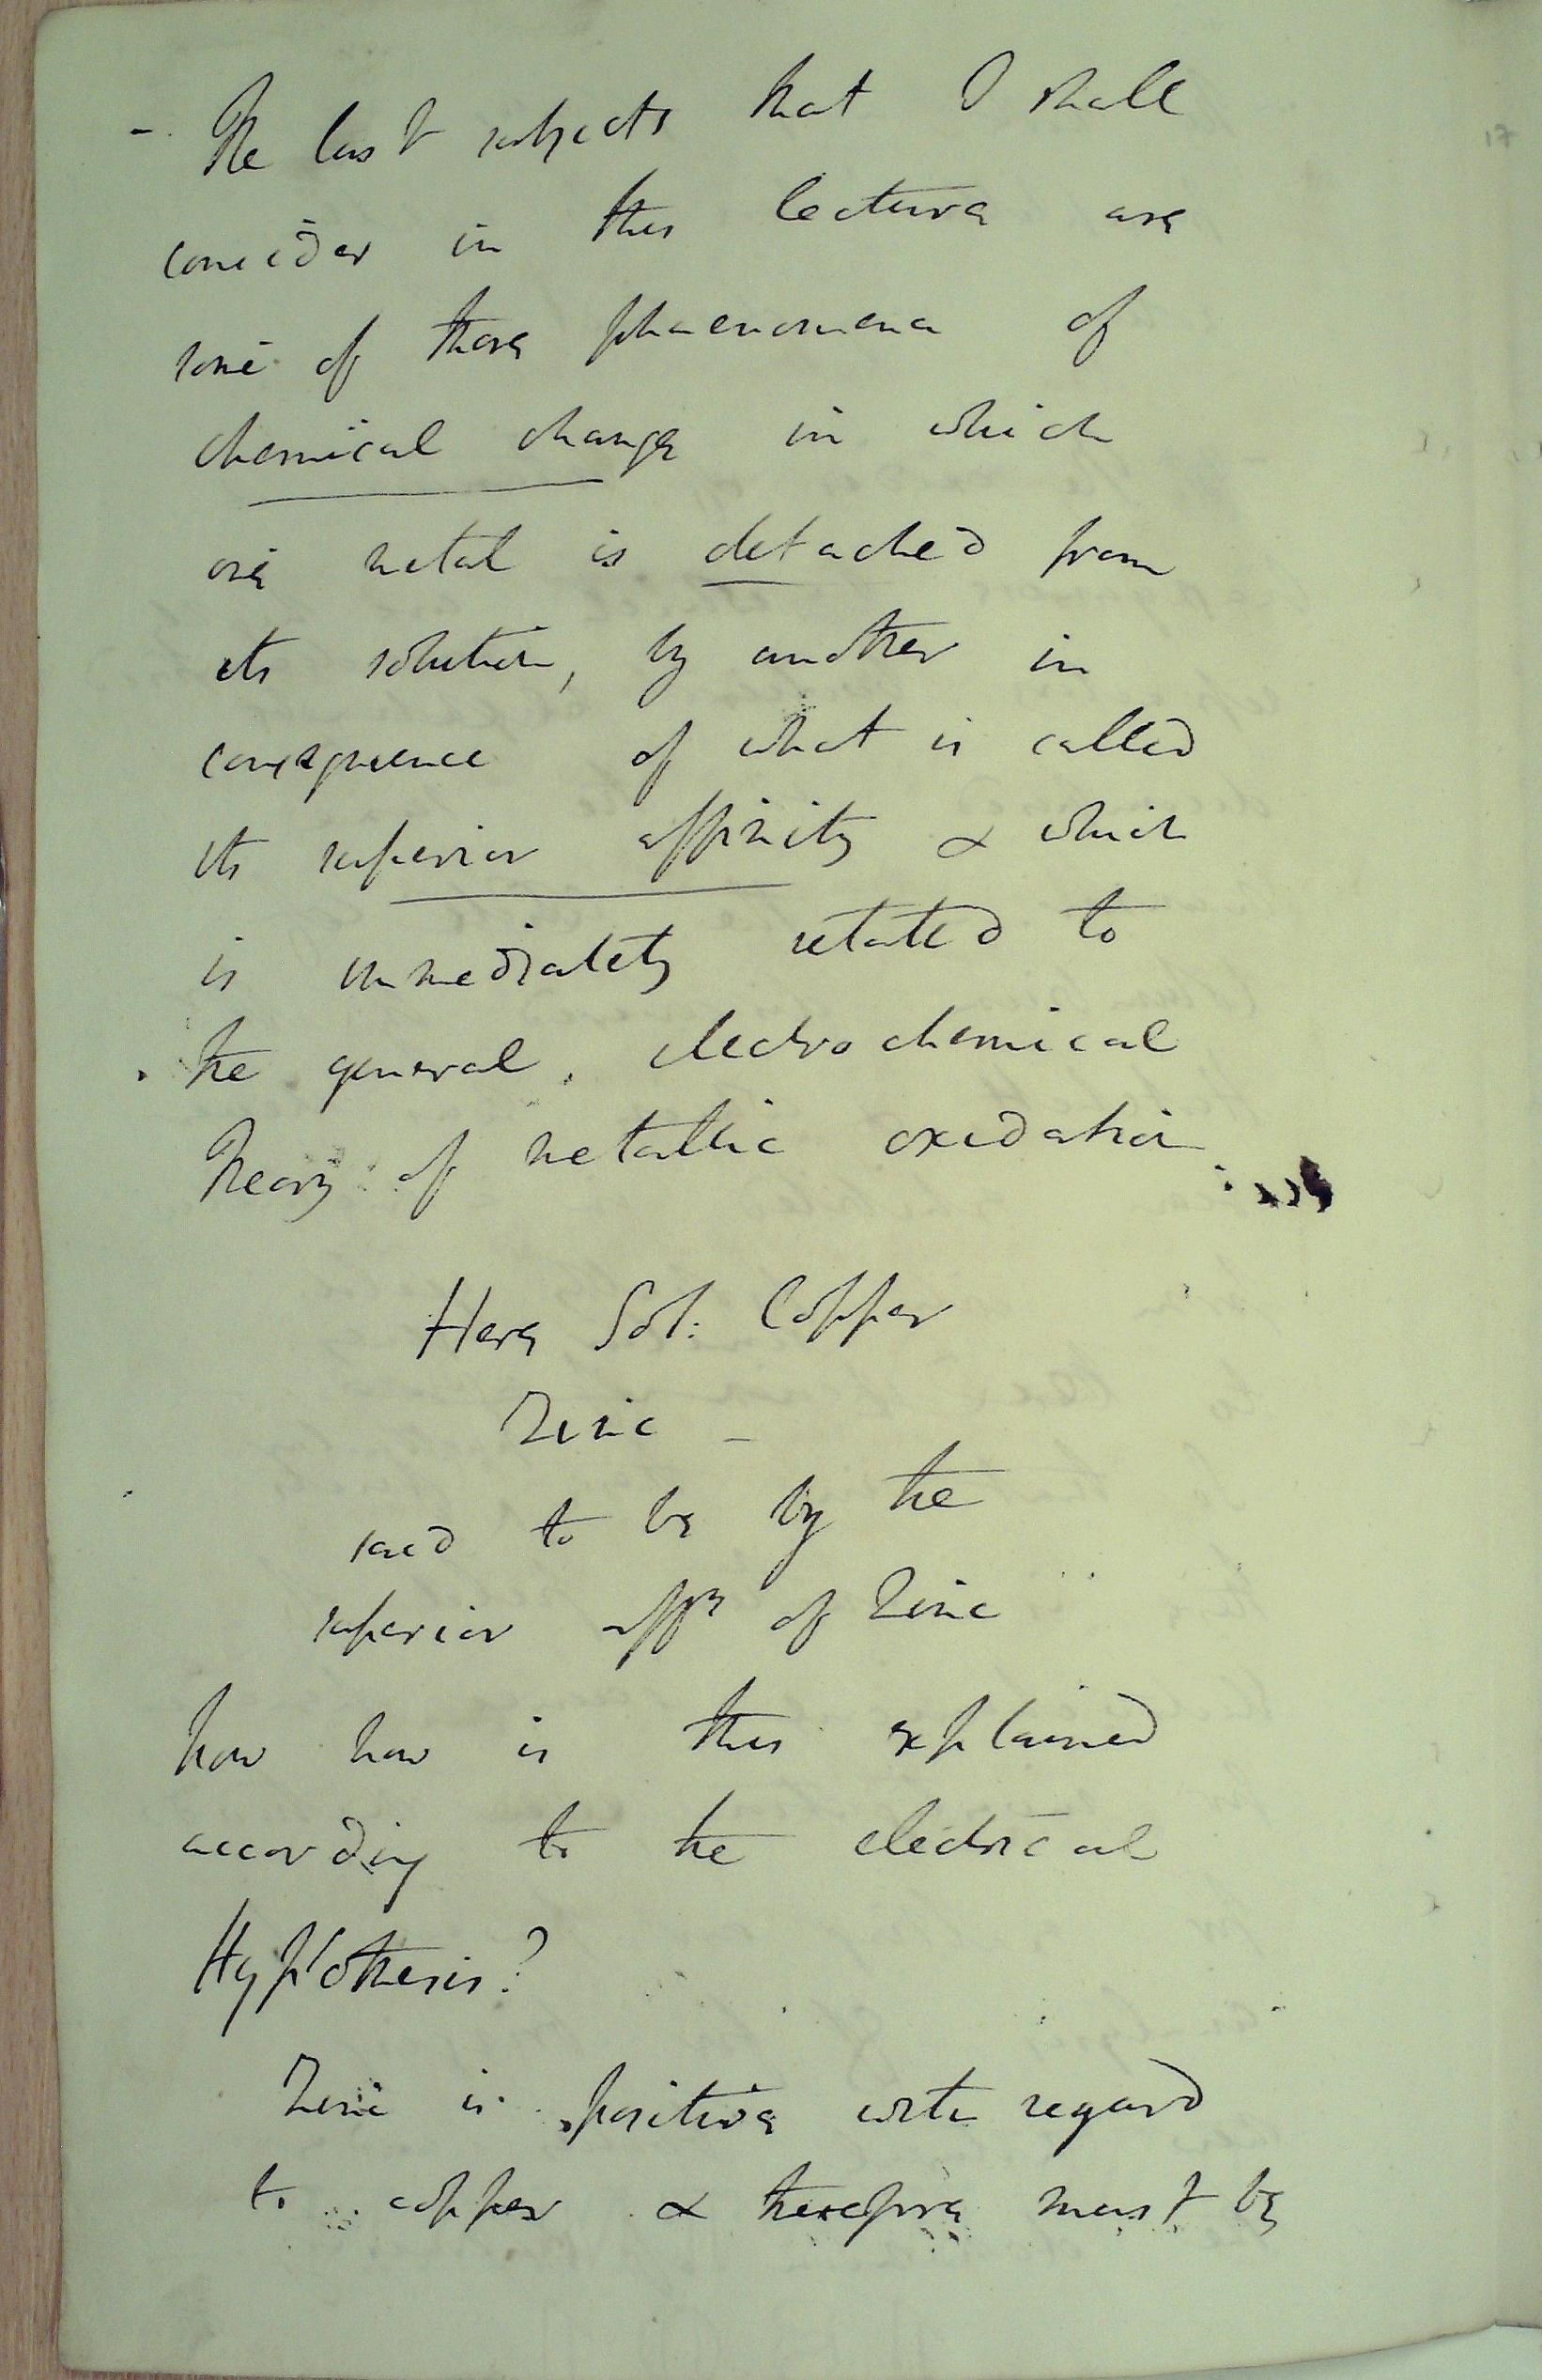 - The last subjects that I shall
consider in this lecture are
some of those phaenomena of
chemical change in which
one metal is detached from
its solution, by another in
consequence of what is called
its superior affinity & which
is immediately related to
the general electrochemical
Theory of metallic oxidation
Here Sol: Copper
Zinc -
said to be by the
superior affy of Zinc
now how is this explained
according to the electrical
Hypothesis?
Zinc is positive with regard
to copper & therefore must be